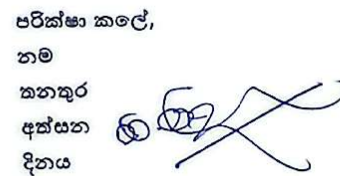 පරික්ෂා කලේ,
නම
තනතුර
අත්සන
දිනය